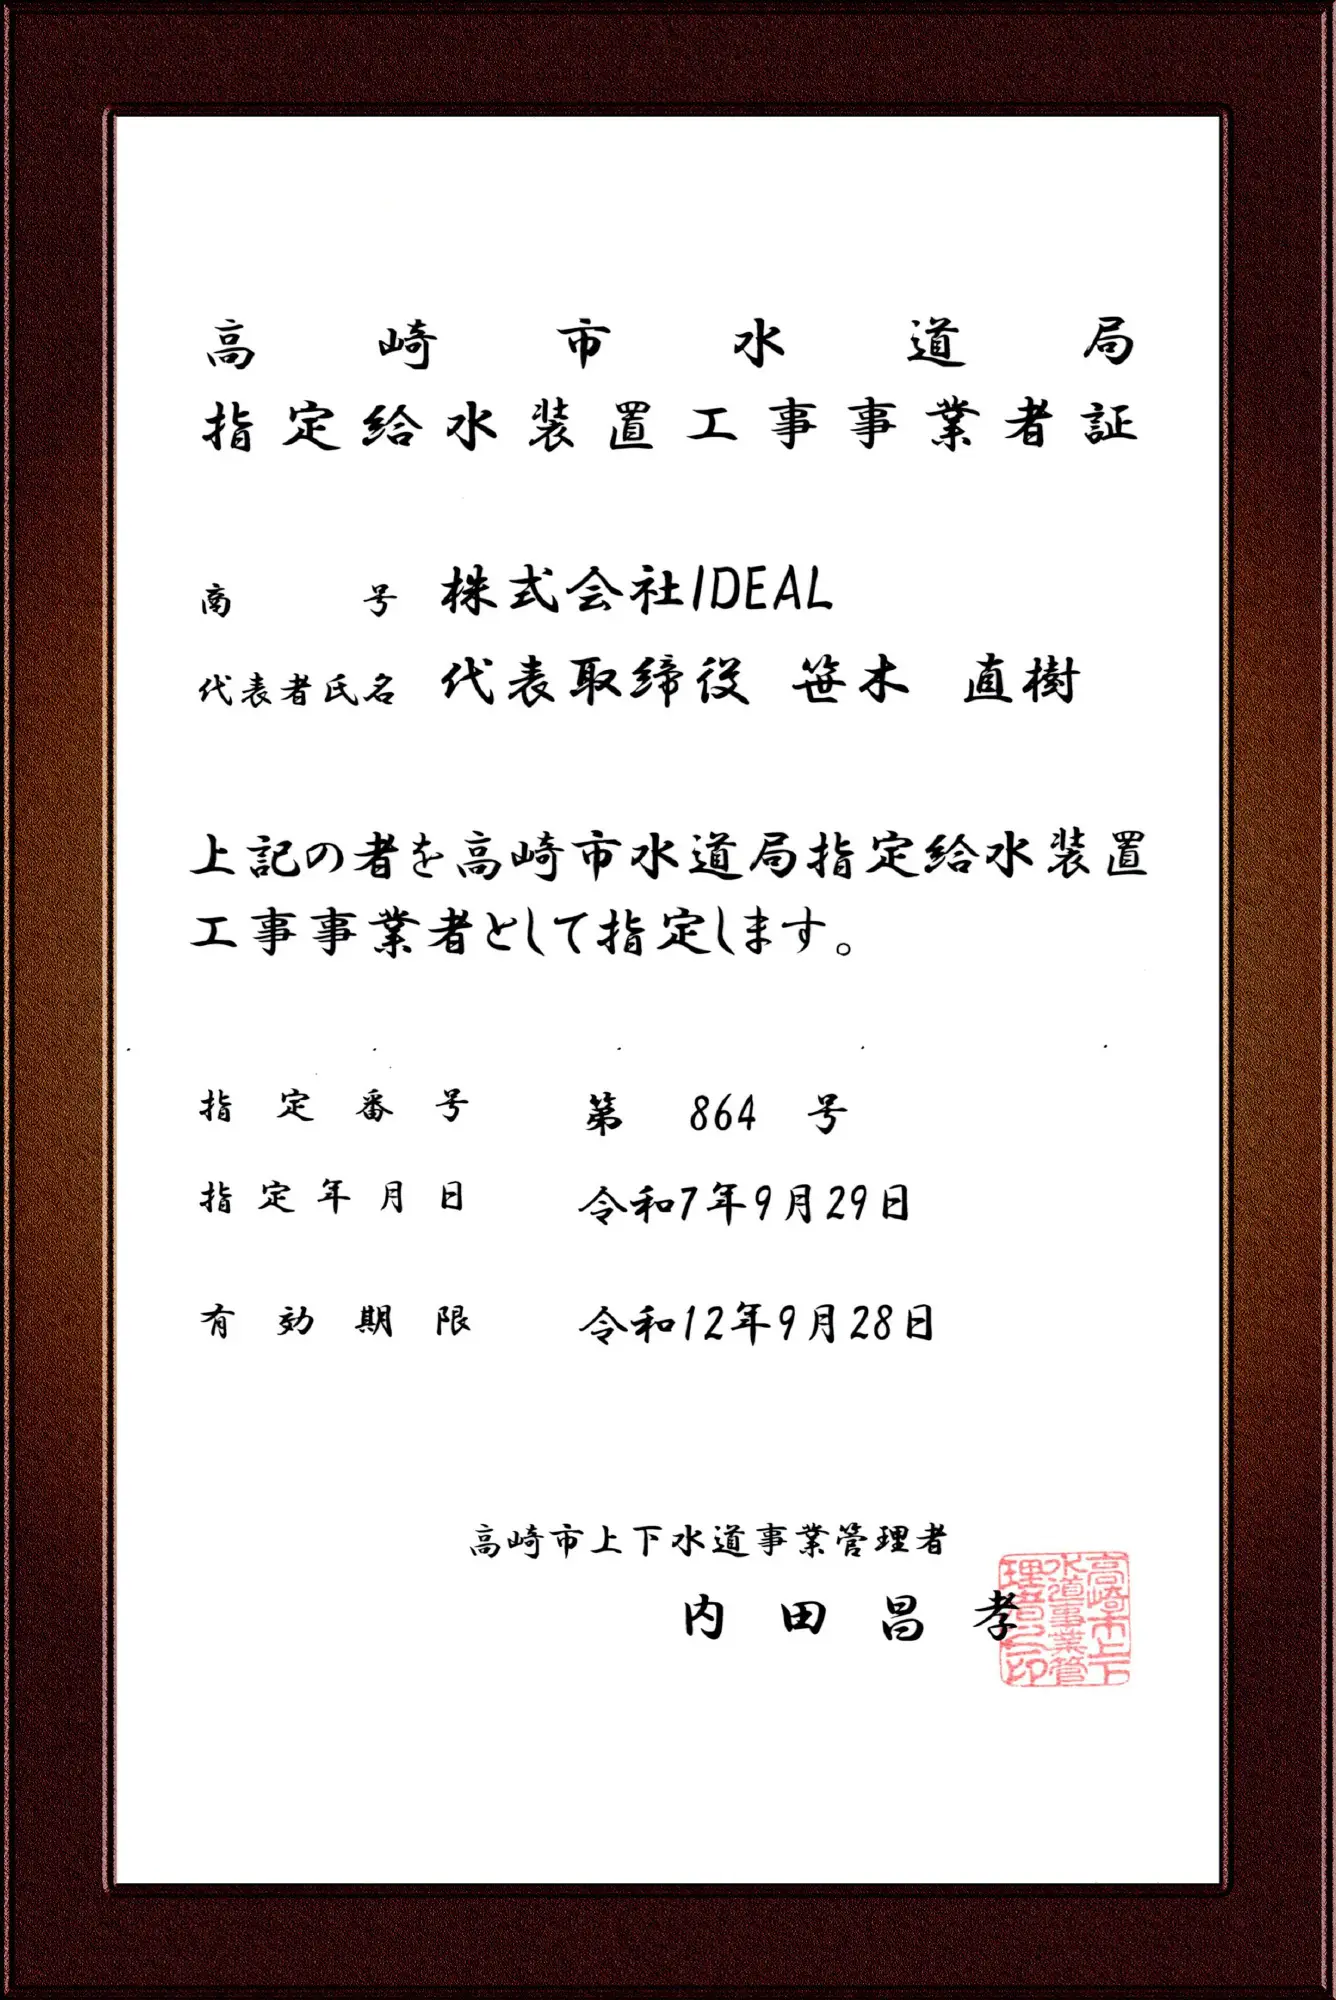 高崎市水道局
指定給水装置工事事業者証
商号 株式会社IDEAL
代表者氏名 代表取締役 笹木 直樹
上記の者を高崎市水道局指定給水装置
工事事業者として指定します。
指定番号 第 864 号
指定年月日 令和7年9月29日
有効期限 令和12年9月28日
高崎市上下水道事業管理者
内田昌孝
高崎市上下
水道事業管
理者之印